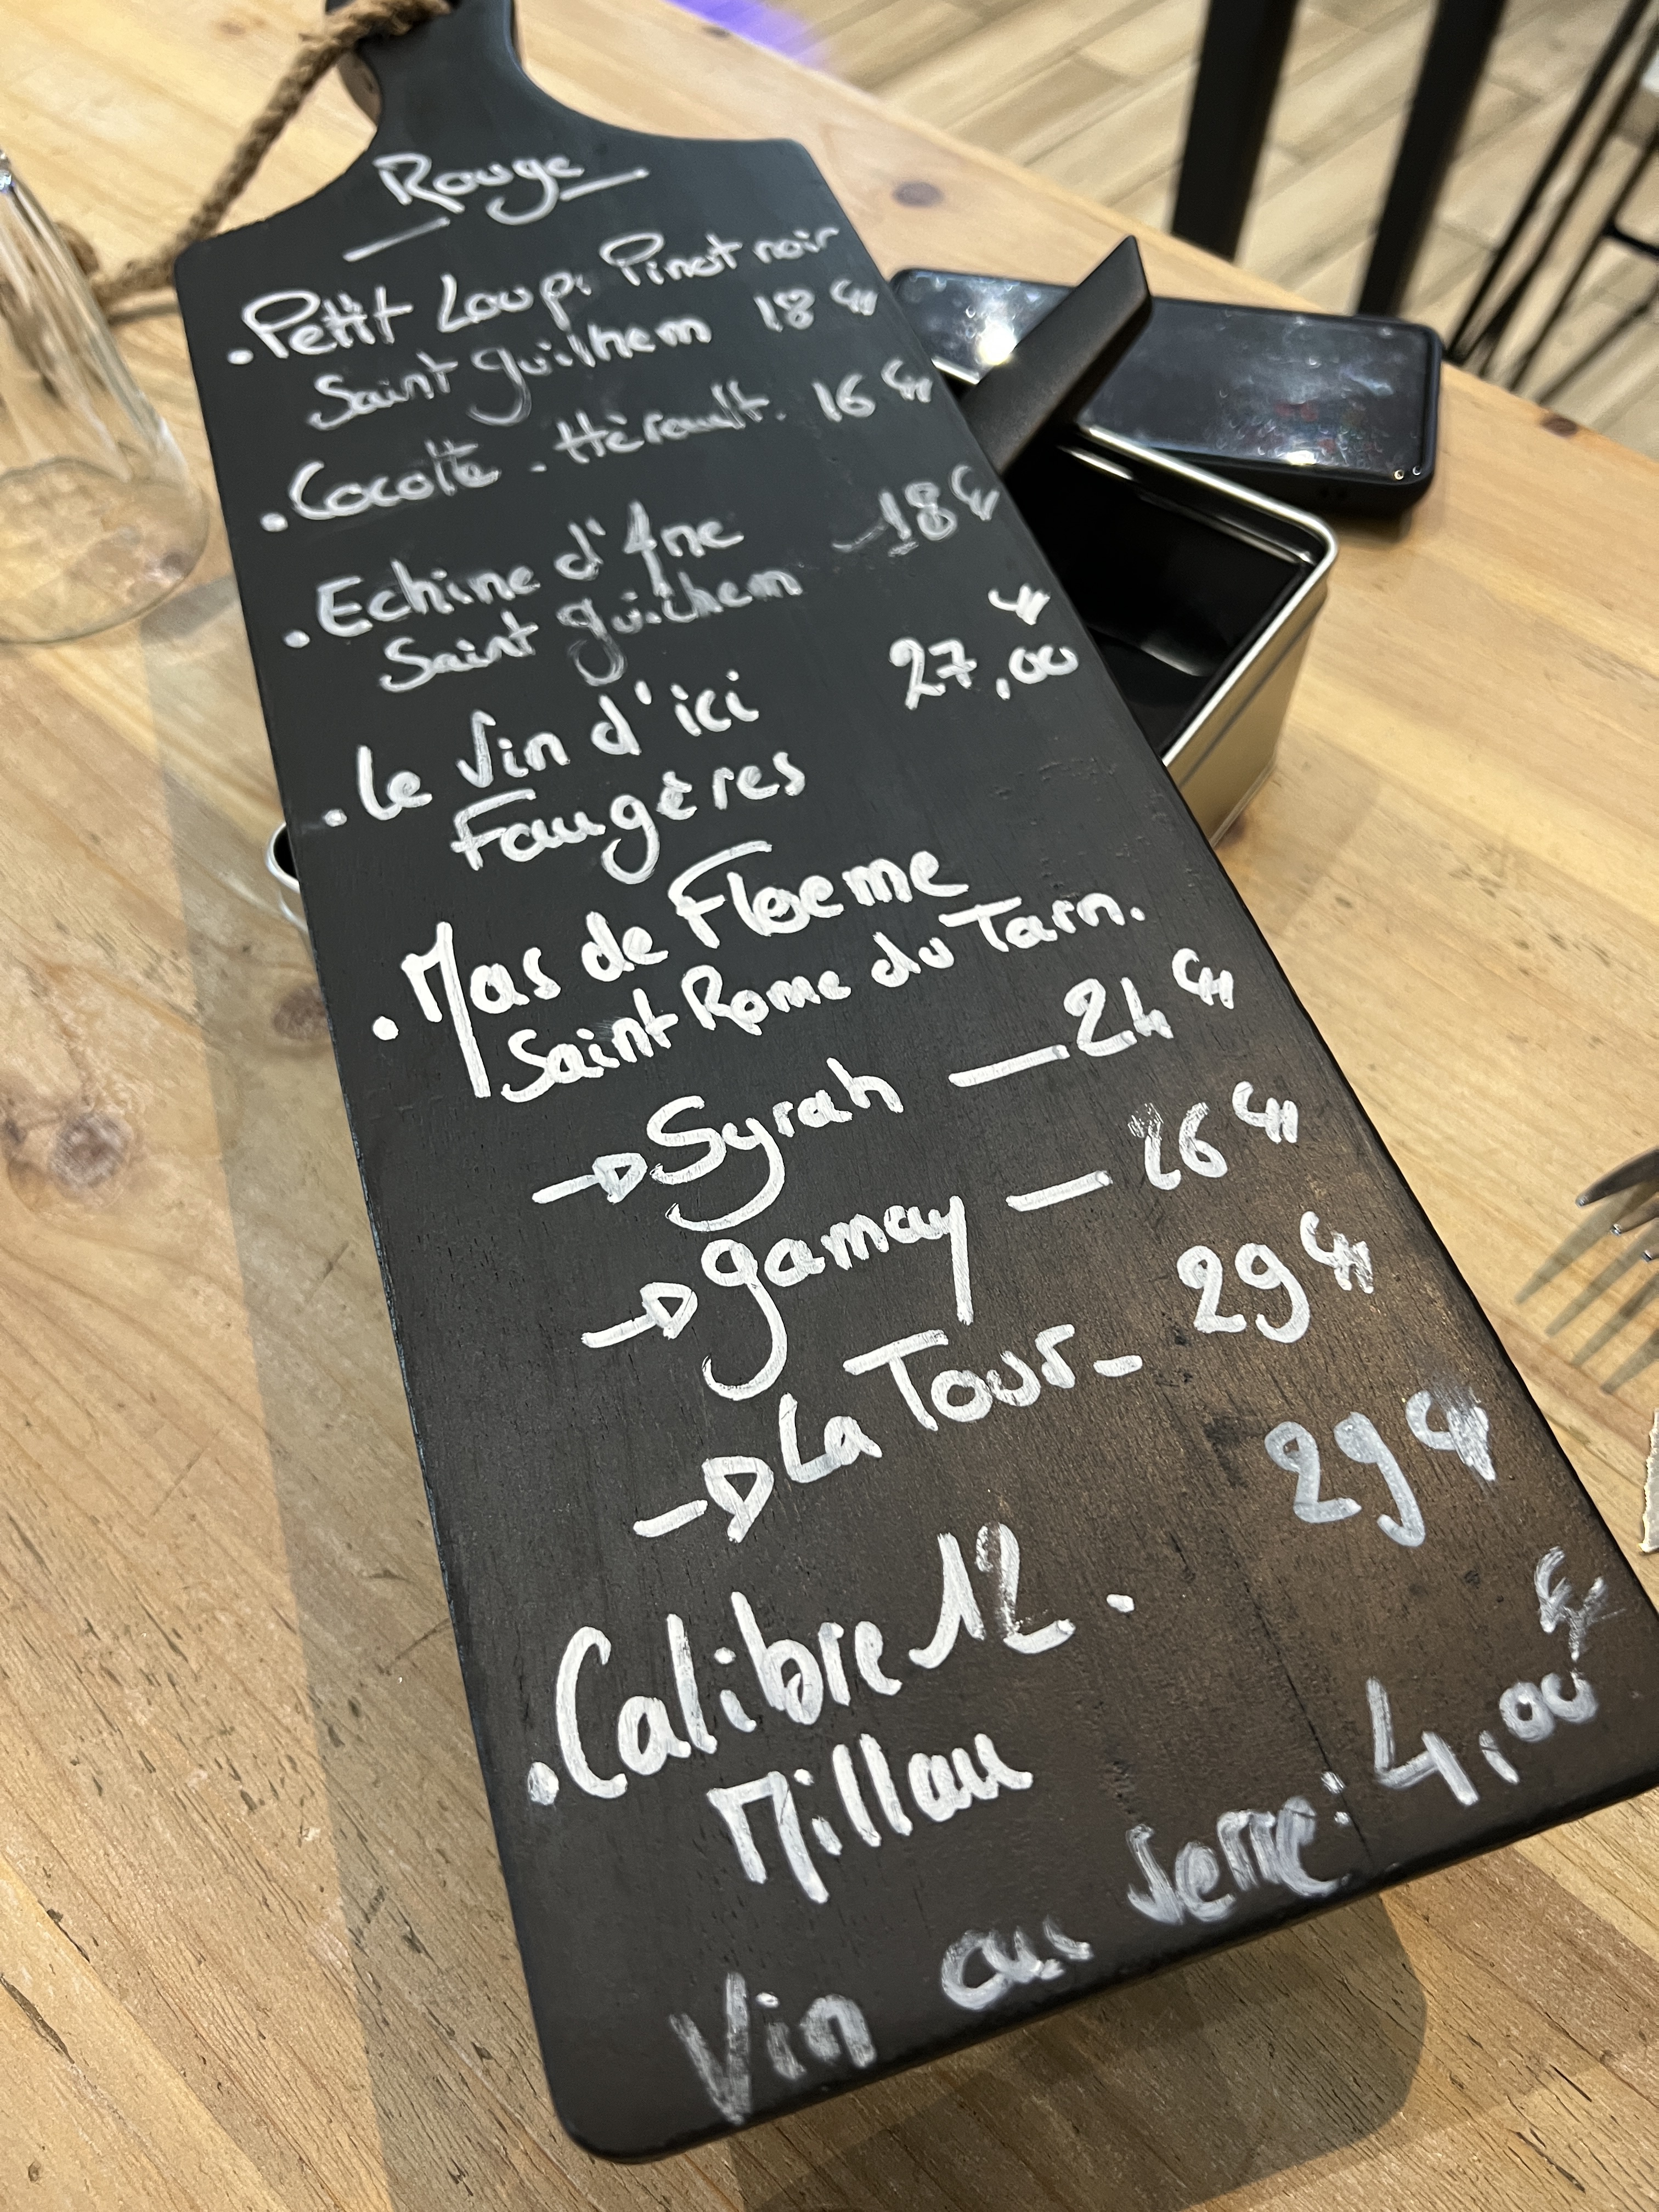 Rouge
• Petit Loup. Pinot noir
Saint guilhem 18 €
• Cocotte - Hérault. 16 €
• Echine d'Ane - 18 €
Saint guilhem
• Le Vin d'ici 27,00 €
Faugères
• Mas de Floeme
Saint Rome du Tarn.
→ Syrah — 24 €
→ gamay — 26 €
→ La Tour - 29 €
• Calibre 12. 29 €
Millau
Vin au verre: 4,00 €